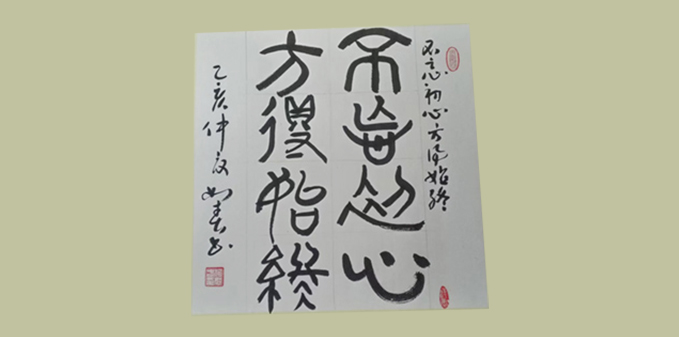 不忘初心方得始終
不忘初心
方得始終
乙亥仲夏如春书